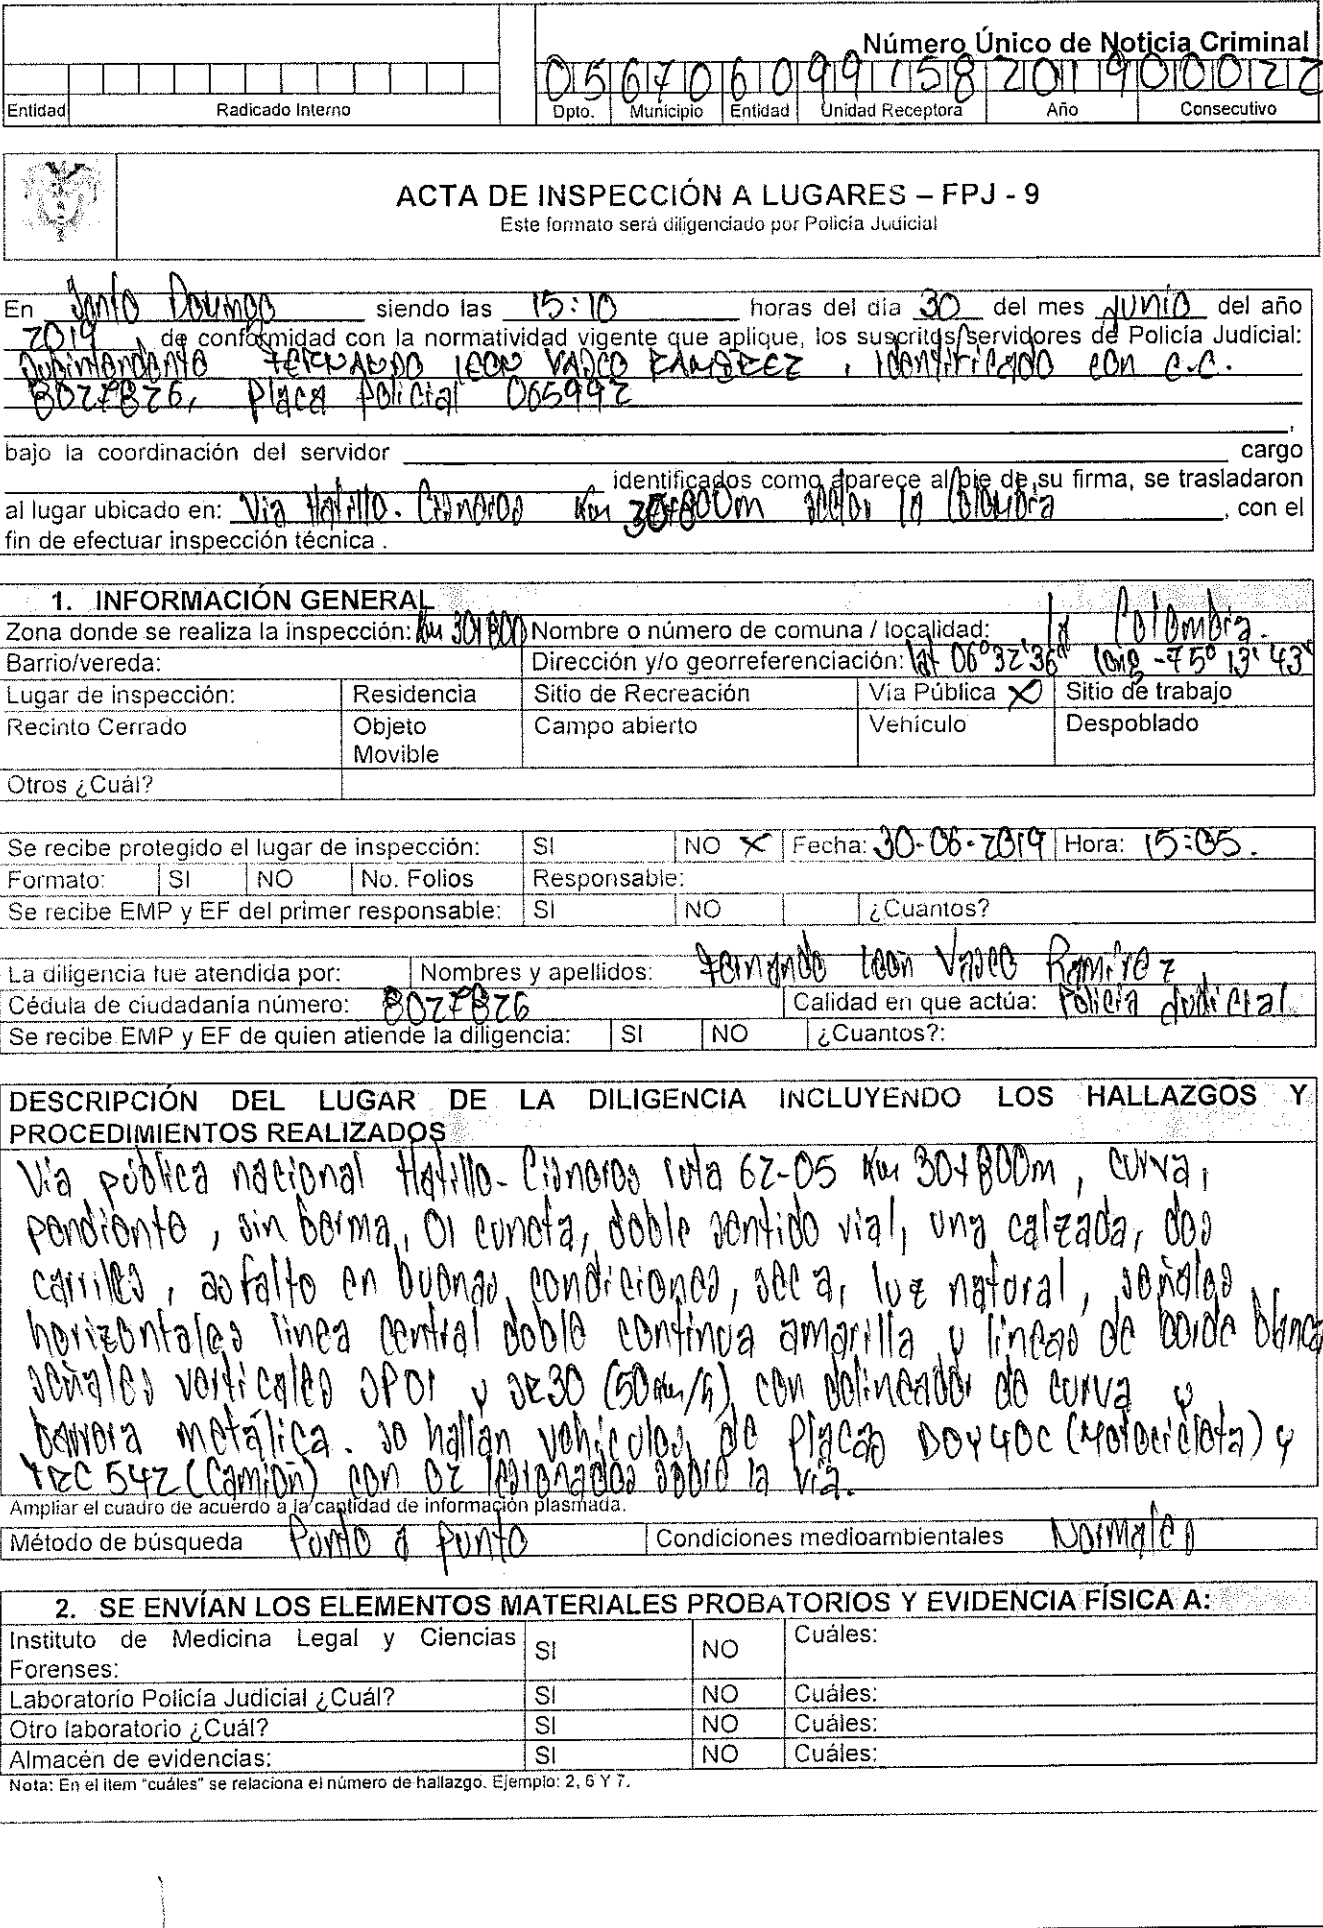 Número Único de Noticia Criminal
05 670 60 99158 2019 00022
Entidad Radicado Interno Dpto. Municipio Entidad Unidad Receptora Año Consecutivo
ACTA DE INSPECCIÓN A LUGARES – FPJ - 9
Este formato será diligenciado por Policía Judicial
En Santo Domingo siendo las 15:10 horas del día 30 del mes Junio del año
2019, de conformidad con la normatividad vigente que aplique, los suscritos servidores de Policía Judicial:
Subintendente FERNANDO LEON VASCO RAMIREZ, identificado con C.C.
8027826, placa policial 065992
,
bajo la coordinación del servidor cargo
identificados como aparece al pie de su firma, se trasladaron
al lugar ubicado en: Via Hatillo - Cisneros Km 30+800m sector la Colombia, con el
fin de efectuar inspección técnica .
1. INFORMACIÓN GENERAL
Zona donde se realiza la inspección: Km 30+800 Nombre o número de comuna / localidad: la Colombia.
Barrio/vereda: Dirección y/o georreferenciación: lat 06°32'36" long -75° 13' 43"
Lugar de inspección: Residencia Sitio de Recreación Vía Pública X Sitio de trabajo
Recinto Cerrado Objeto Movible Campo abierto Vehículo Despoblado
Otros ¿Cuál?
Se recibe protegido el lugar de inspección: SI NO X Fecha: 30-06-2019 Hora: 15:05.
Formato: SI NO No. Folios Responsable:
Se recibe EMP y EF del primer responsable: SI NO ¿Cuantos?
La diligencia fue atendida por: Nombres y apellidos: Fernando Leon Vasco Ramirez
Cédula de ciudadanía número: 8027826 Calidad en que actúa: Policía Judicial
Se recibe EMP y EF de quien atiende la diligencia: SI NO ¿Cuantos?:
DESCRIPCIÓN DEL LUGAR DE LA DILIGENCIA INCLUYENDO LOS HALLAZGOS Y
PROCEDIMIENTOS REALIZADOS
Via pública nacional Hatillo - Cisneros ruta 62-05 Km 30+800m, curva,
pendiente, sin berma, cuneta, doble sentido vial, una calzada, dos
carriles, asfalto en buenas condiciones, seca, luz natural, señales
horizontales linea central doble continua amarilla y lineas de borde blanca
señales verticales SP01 y SR30 (50km/h), con delineador de curva y
barrera metálica. se hallan vehículos de placas DOY40C (Motocicleta) y
TRC 542 (Camión) con 02 lesionados sobre la via.
Ampliar el cuadro de acuerdo a la cantidad de información plasmada.
Método de búsqueda Punto a punto Condiciones medioambientales Normales
2. SE ENVÍAN LOS ELEMENTOS MATERIALES PROBATORIOS Y EVIDENCIA FÍSICA A:
Instituto de Medicina Legal y Ciencias Forenses: SI NO Cuáles:
Laboratorio Policía Judicial ¿Cuál? SI NO Cuáles:
Otro laboratorio ¿Cuál? SI NO Cuáles:
Almacén de evidencias: SI NO Cuáles:
Nota: En el ítem "cuáles" se relaciona el número de hallazgo. Ejemplo: 2, 6 Y 7.